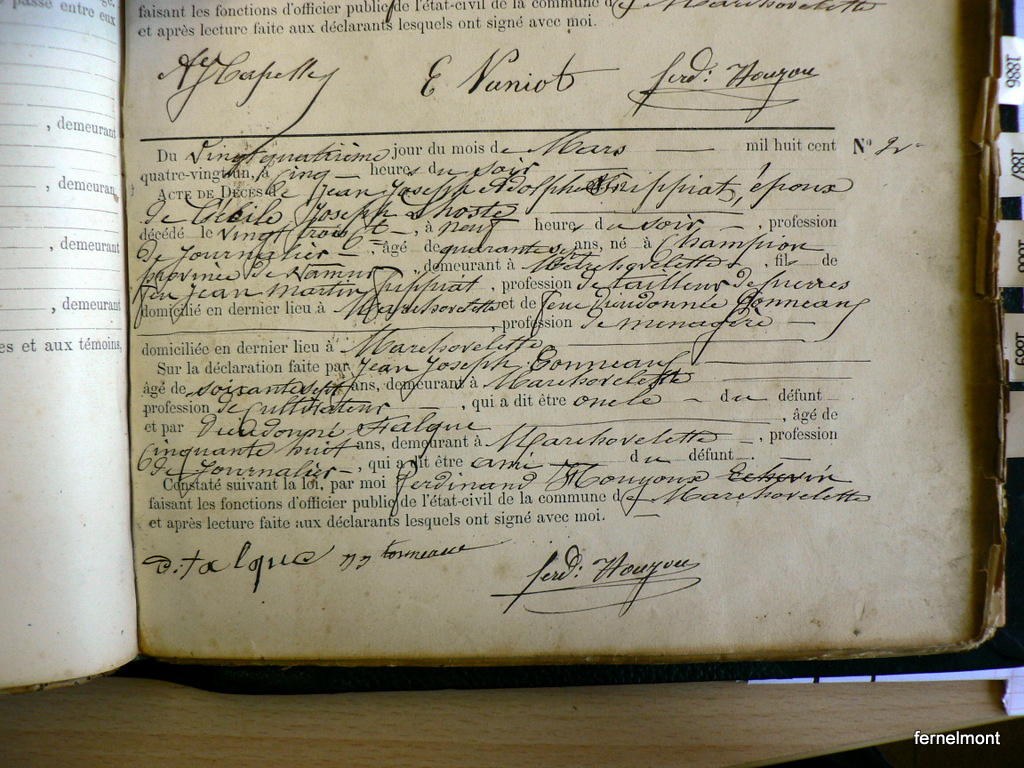 passé entre eux
, demeurant
, demeurant
, demeurant
, demeurant
es et aux témoins,
faisant les fonctions d'officier public de l'état-civil de la commune de Marchovelette
et après lecture faite aux déclarants lesquels ont signé avec moi.
Capelle E Vaniot ferd: Houyou
Du Vingt quatrième jour du mois de Mars — mil huit cent N° 2
quatre-vingt un, à cinq — heures du soir
ACTE DE DÉCÈS de Jean Joseph Adolphe Frippiat, époux
de Cécile Joseph Lhoste
décédé le vingt trois ct —, à neuf heures du soir —, profession
de Journalier —, âgé de quarante six ans, né à Champion
province de Namur, demeurant à Marchovelette, fils de
feu Jean Martin Frippiat, profession de tailleur de pierres
domicilié en dernier lieu à Marchovelette et de feue Dieudonnée Gonneaux
, profession de ménagère —
domiciliée en dernier lieu à Marchovelette
Sur la déclaration faite par Jean Joseph Tonneaux
âgé de soixante sept ans, demeurant à Marchovelette
profession de Cultivateur, qui a dit être oncle — du défunt
et par Dieudonné Falque, âgé de
cinquante huit ans, demeurant à Marchovelette —, profession
de Journalier —, qui a dit être ami du défunt. —
Constaté suivant la loi, par moi Ferdinand Houyoux Echevin
faisant les fonctions d'officier public de l'état-civil de la commune de Marchovelette
et après lecture faite aux déclarants lesquels ont signé avec moi. —
D. falque JJ tonneaux ferd: Houyou
1886
1887
1889
fernelmont